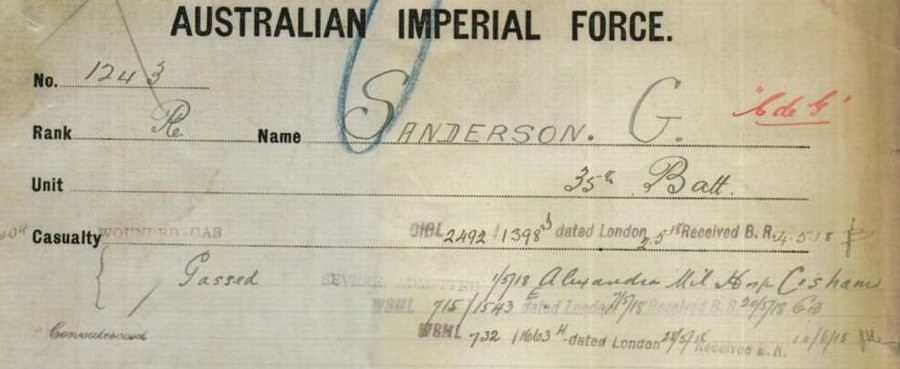 AUSTRALIAN IMPERIAL FORCE.
No. 1243
"C de G"
Rank Name SANDERSON. G.
Unit 35th Batt.
Casualty WOUNDED-GAS 2492/1398 dated London 2.5.18 Received B. R. 4.5.18
Gassed SEVERE ADMITTED 1/5/18 Alexandra Mil Hosp Cosham
W8ML 715/1543 E dated London 17/5/18 Received B. R. 20/5/18
Convalescent W8ML 732 /1663 H dated London Received B. R.